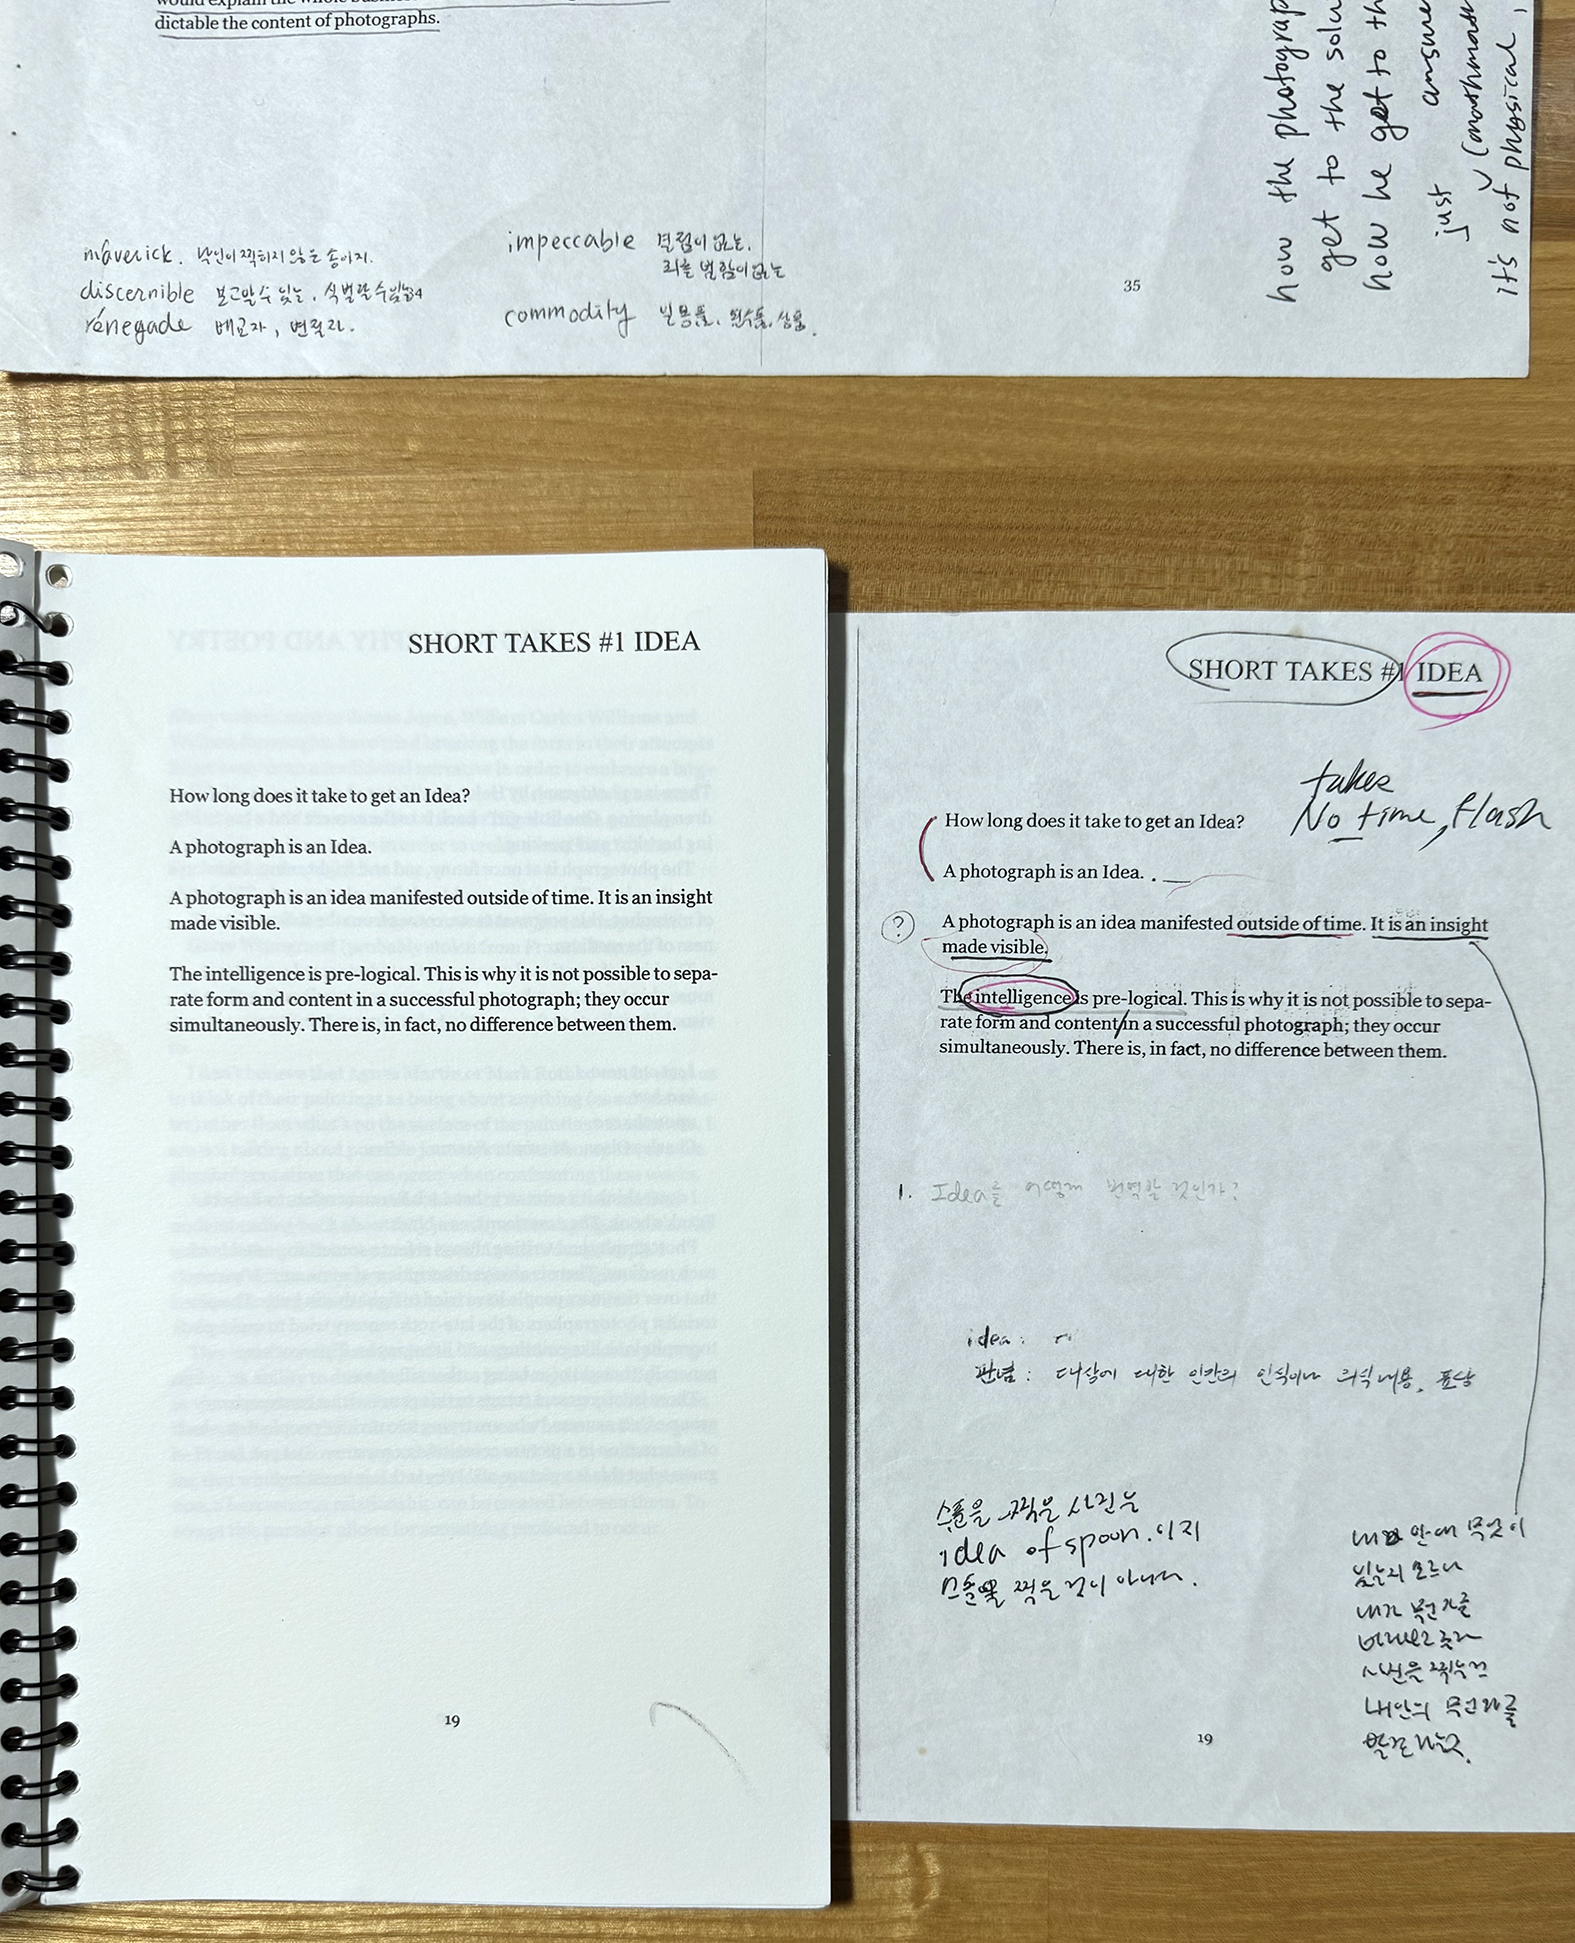 dictable the content of photographs.
maverick. 낙인이 찍히지 않은 송아지.
discernible 보고 알 수 있는, 식별할 수 있는
renegade 배교자, 변절자.
impeccable 결점이 없는,
죄를 범함이 없는
commodity 일용품, 필수품, 상품.
35
how the photograp
get to the solu
how he get to th
just answe
it's not physical,
SHORT TAKES #1 IDEA
How long does it take to get an Idea?
A photograph is an Idea.
A photograph is an idea manifested outside of time. It is an insight
made visible.
The intelligence is pre-logical. This is why it is not possible to sepa-
rate form and content in a successful photograph; they occur
simultaneously. There is, in fact, no difference between them.
19
SHORT TAKES #1 IDEA
takes
No time, flash
How long does it take to get an Idea?
A photograph is an Idea.
? A photograph is an idea manifested outside of time. It is an insight
made visible.
The intelligence is pre-logical. This is why it is not possible to sepa-
rate form and content in a successful photograph; they occur
simultaneously. There is, in fact, no difference between them.
1. Idea를 어떻게 번역할 것인가?
idea:
관념: 대상에 대한 인간의 인식이나 의식내용, 표상
스푼을 찍은 사진은
idea of spoon.이지
스푼을 찍은 것이 아니다.
내 안에 무엇이
있는지 모르나
내가 무언가를
바라보고
사진을 찍는건
내안의 무언가를
발견하는것.
19